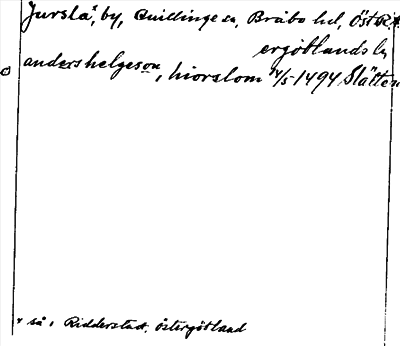 Jursla*, by, Quillinge sn, Bråbo hd, Öst R.A.
ergötlands l,
anders helgeson, hiorslom 14/5 1494 Slätten
* så i Ridderstad, Östergötland